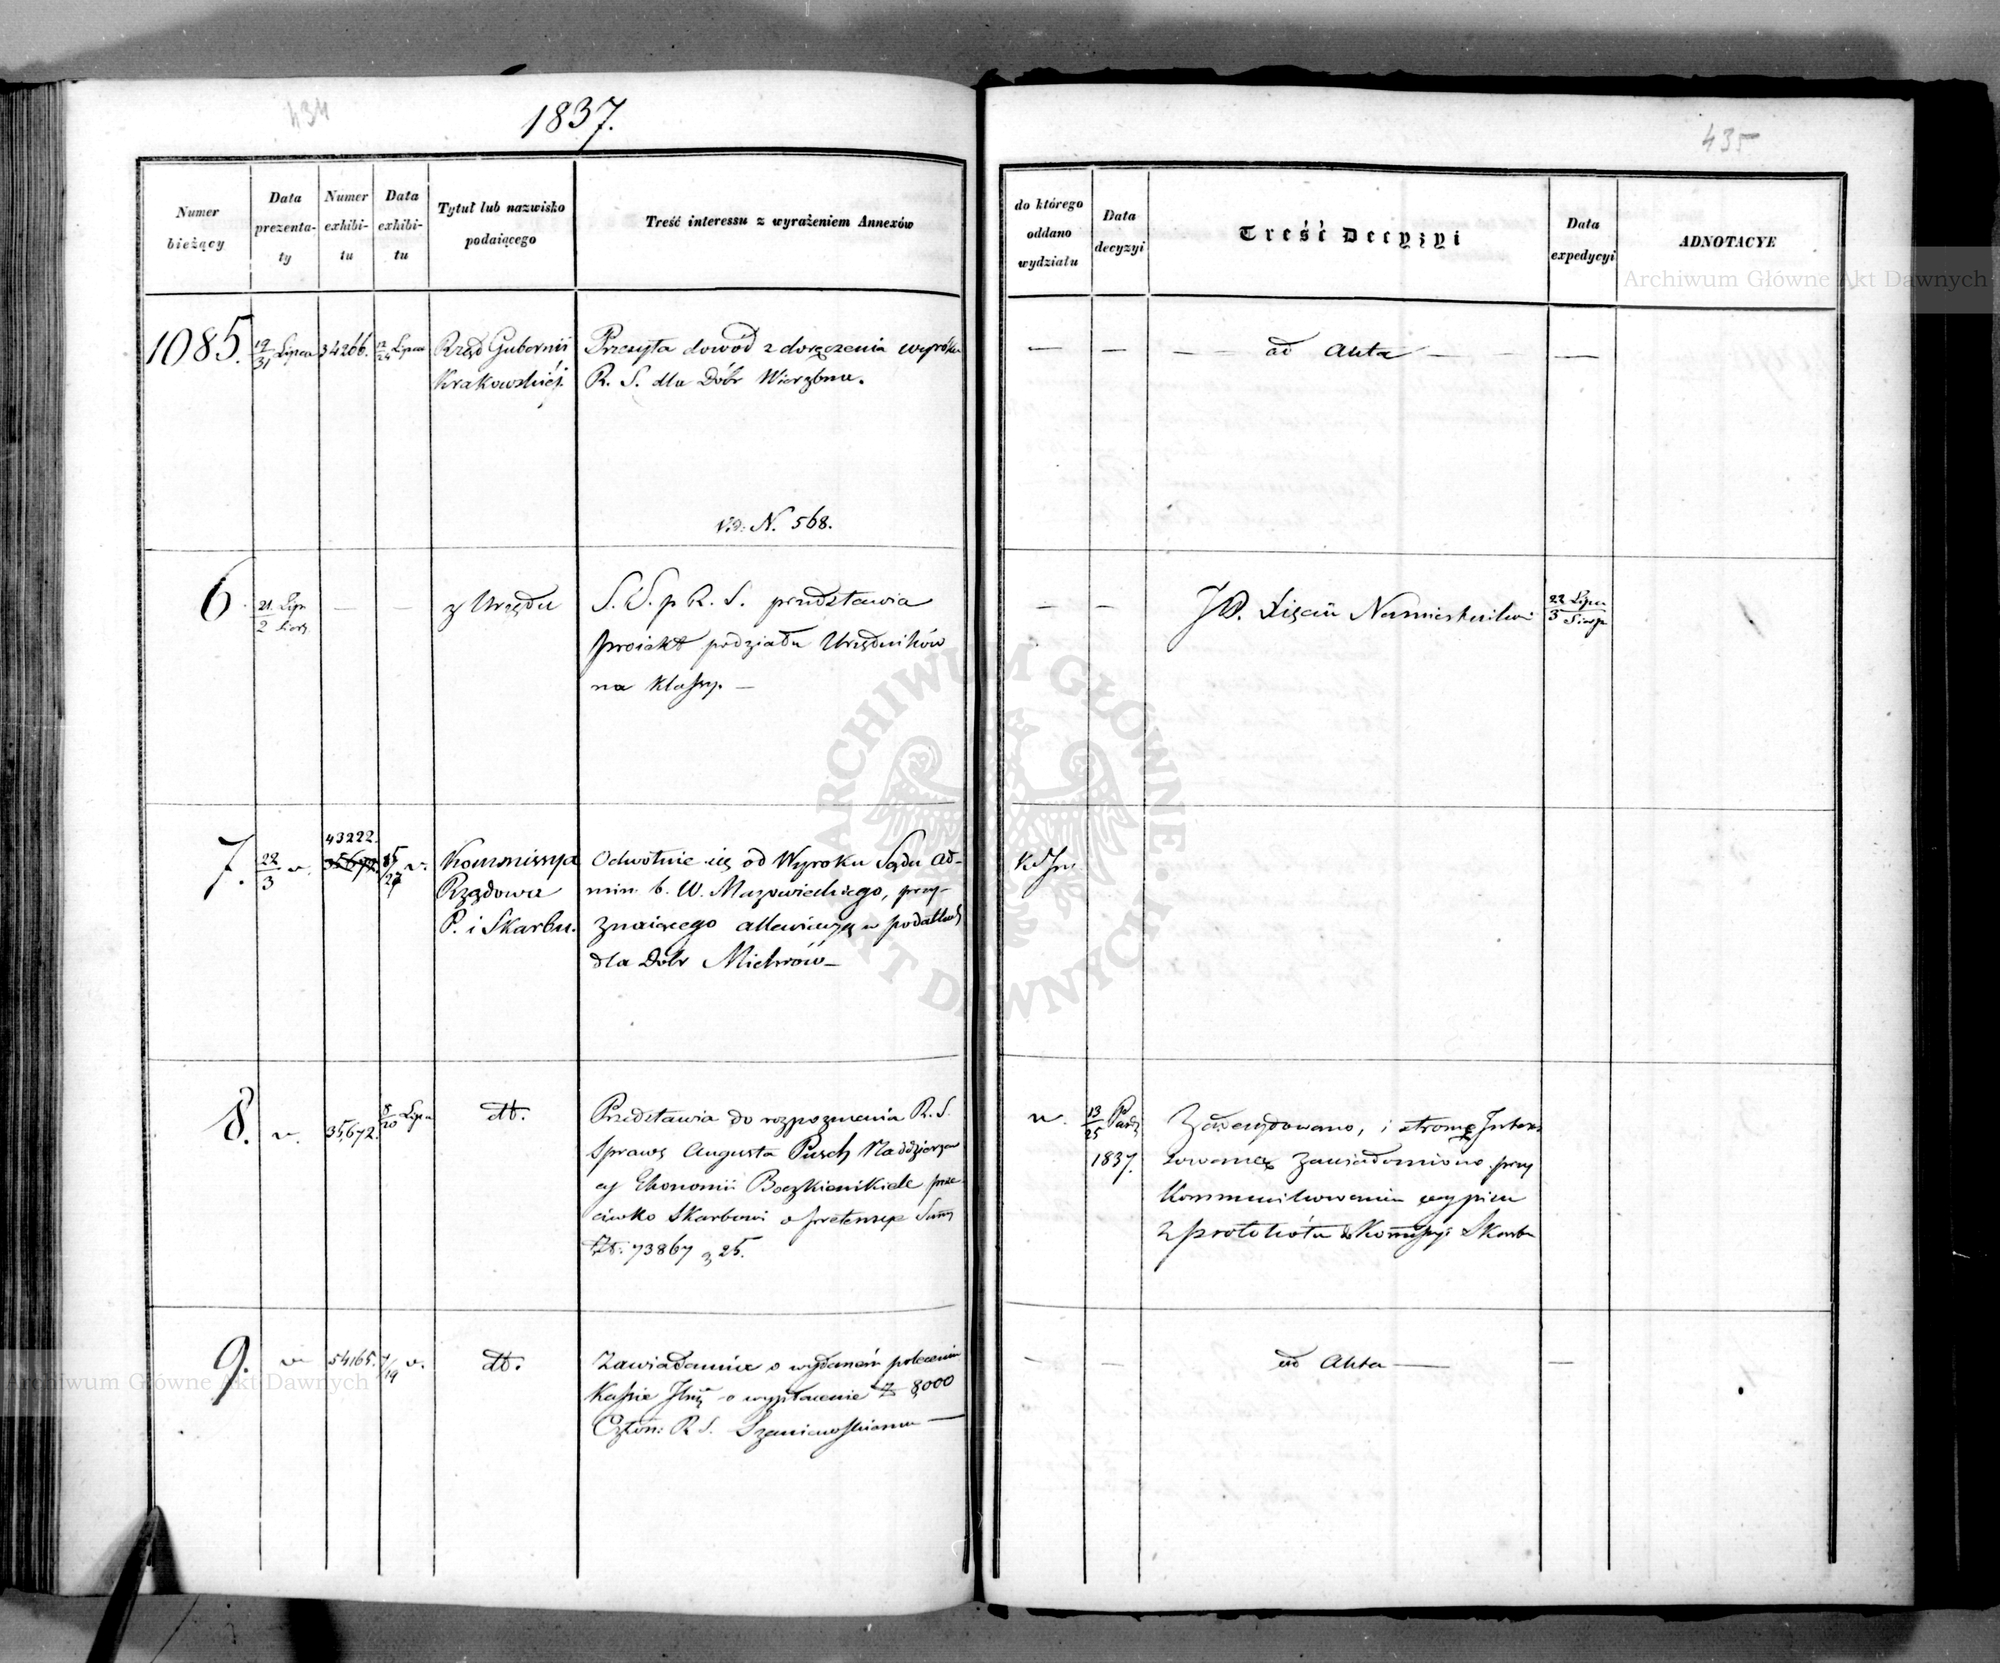 434
1837.
Numer bieżący
Data prezentaty
Numer exhibitu
Data exhibitu
Tytuł lub nazwisko podaiącego
Treść interessu z wyrażeniem Annexów
1085. 19/31 Lipca 34266. 12/24 Lipca
Rząd Gubernii
Krakowskiéj.
Przesyła dowód z doręczenia wyroku
R. S. dla Dóbr Wierzbna.
Vid: N. 568.
6. 21. Lip / 2 Sierp. — —
z Urzędu
S. S. p R. S. przedstawia
proiekt podziału Urzędników
na klassy. —
7. 22/3 v. 43222. 35679. 15/27 v.
Kommissya
Rządowa
P. i Skarbu.
Odwołuie się od Wyroku Sądu Ad-
min. b. W. Mazowieckiego, przy-
znaiącego allewiacyą w podatkach
dla Dóbr Michrów —
8. v. 35,672. 8/20 Lipca
dt.
Przedstawia do rozpoznania R. S.
Sprawę Augusta Pusch Naddzierżaw
cy Ekonomii Boczkienikiele prze
ciwko Skarbowi o pretensye Summ
Złt: 73867 g 25.
9. v. 54165. 7/19 v.
dt.
Zawiadamia o wydaniu polecenia
Kassie o wypłacenie Zł 8,000
Człon: R S. Szaniawskiemu —
435
do którego oddano wydziału
Data decyzyi
Treść Decyzyi
Data expedycyi
ADNOTACYE
— — — — ad Akta — — —
— — JO. Xięciu Namiestnikowi 22 Lipca / 3 Sierp
v. 13/25 Paźdz
1837.
Zadecydowano, i stronę Interes
sowaną zawiadomiono przy
kommunikowaniu wypisu
z protokółu do Kommissyi Skarbu
— — ad Akta — —
Archiwum Główne Akt Dawnych
Archiwum Główne Akt Dawnych
ARCHIWUM GŁÓWNE AKT DAWNYCH